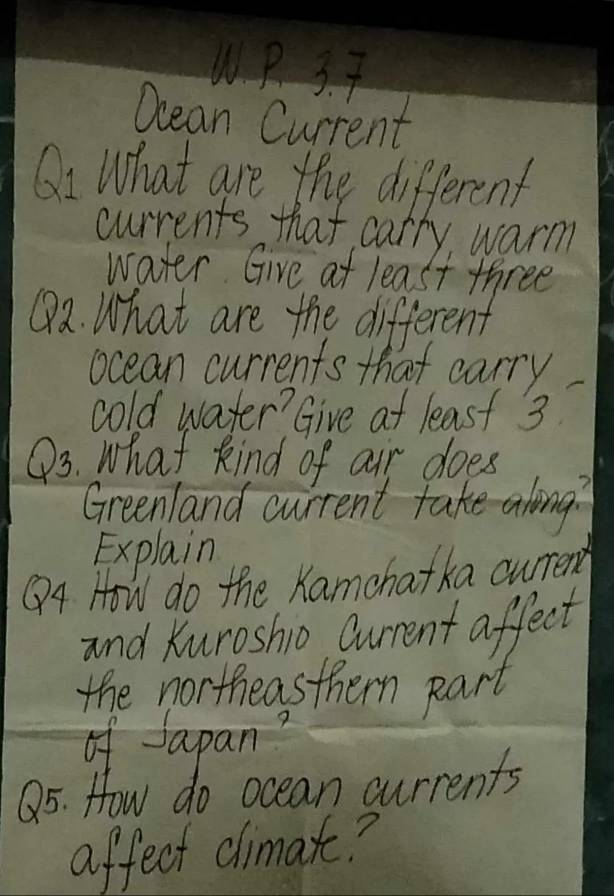 W.P. 3.7
Ocean Current
Q1. What are the different
currents that carry warm
water. Give at least three
Q2. What are the different
ocean currents that carry
cold water? Give at least 3.
Q3. What kind of air does
Greenland current take along?
Explain.
Q4. How do the Kamchatka current
and Kuroshio Current affect
the northeasthern part
of Japan?
Q5. How do ocean currents
affect climate?